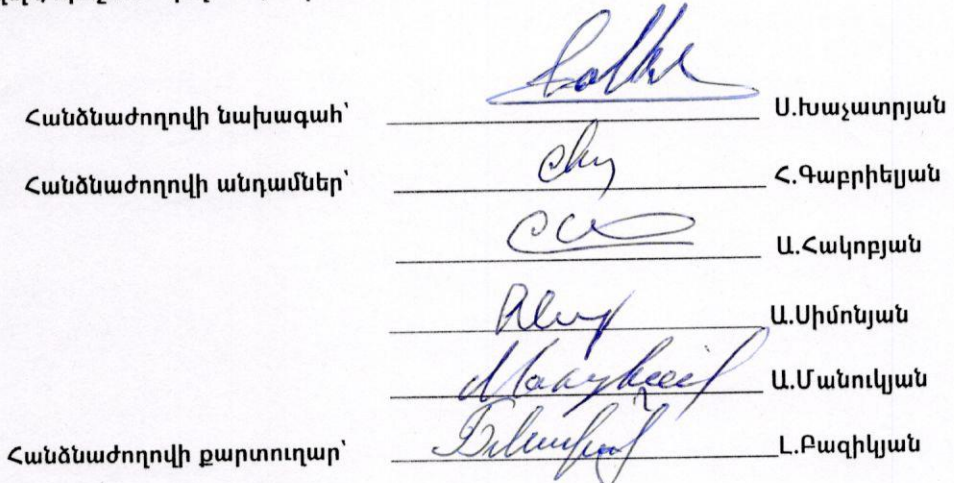 Հանձնաժողովի նախագահ՝ Ս.Խաչատրյան
Հանձնաժողովի անդամներ՝ Հ.Գաբրիելյան
Ա.Հակոբյան
Ա.Սիմոնյան
Ա.Մանուկյան
Հանձնաժողովի քարտուղար՝ Լ.Բազիկյան